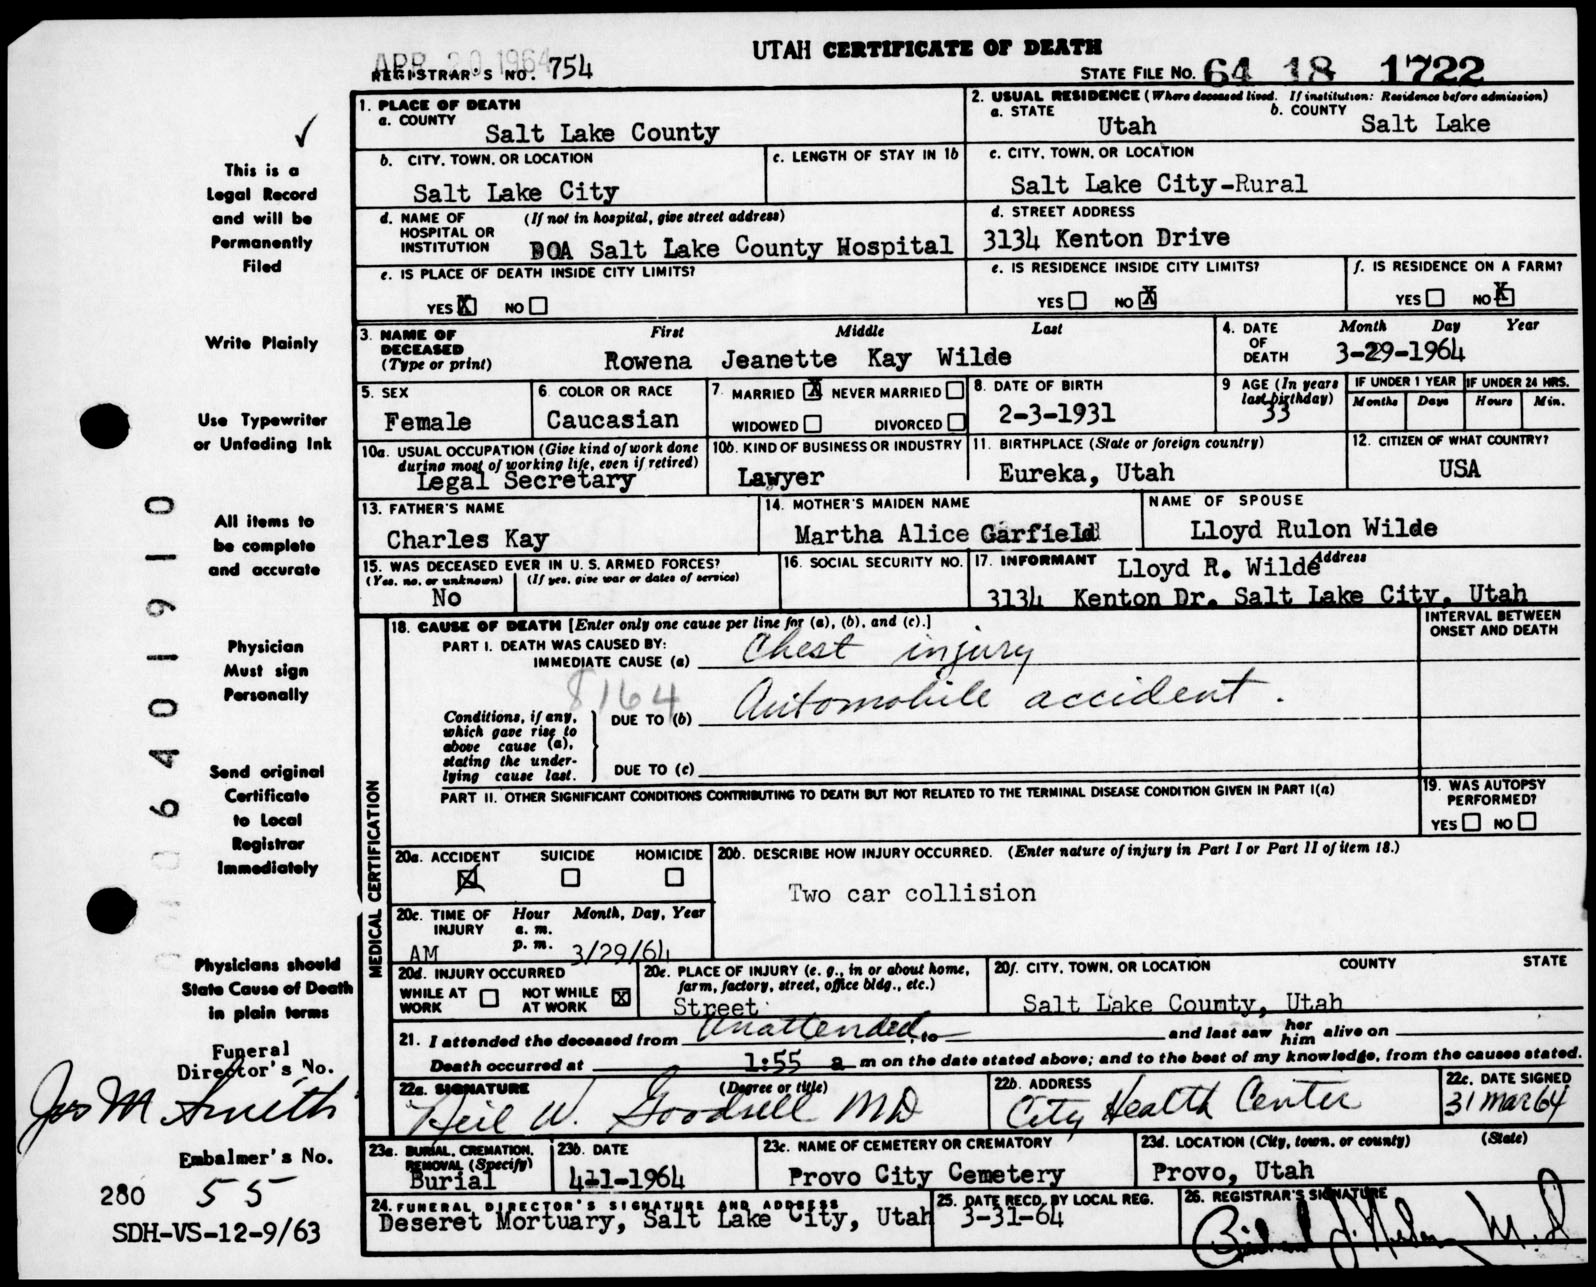 APR 20 1964
UTAH CERTIFICATE OF DEATH
REGISTRAR'S NO. 754
STATE FILE NO. 64 18 1722
1. PLACE OF DEATH
a. COUNTY
Salt Lake County
2. USUAL RESIDENCE (Where deceased lived. If institution: Residence before admission)
a. STATE
Utah
b. COUNTY
Salt Lake
b. CITY, TOWN, OR LOCATION
Salt Lake City
c. LENGTH OF STAY IN 1b
c. CITY, TOWN, OR LOCATION
Salt Lake City-Rural
d. NAME OF HOSPITAL OR INSTITUTION
(If not in hospital, give street address)
DOA Salt Lake County Hospital
d. STREET ADDRESS
3134 Kenton Drive
e. IS PLACE OF DEATH INSIDE CITY LIMITS?
YES X NO
e. IS RESIDENCE INSIDE CITY LIMITS?
YES NO X
f. IS RESIDENCE ON A FARM?
YES NO X
3. NAME OF DECEASED
(Type or print)
First Middle Last
Rowena Jeanette Kay Wilde
4. DATE OF DEATH
Month Day Year
3-29-1964
5. SEX
Female
6. COLOR OR RACE
Caucasian
7. MARRIED X NEVER MARRIED
WIDOWED DIVORCED
8. DATE OF BIRTH
2-3-1931
9 AGE (In years last birthday)
33
IF UNDER 1 YEAR
Months Days
IF UNDER 24 HRS.
Hours Min.
10a. USUAL OCCUPATION (Give kind of work done during most of working life, even if retired)
Legal Secretary
10b. KIND OF BUSINESS OR INDUSTRY
Lawyer
11. BIRTHPLACE (State or foreign country)
Eureka, Utah
12. CITIZEN OF WHAT COUNTRY?
USA
13. FATHER'S NAME
Charles Kay
14. MOTHER'S MAIDEN NAME
Martha Alice Garfield
NAME OF SPOUSE
Lloyd Rulon Wilde
15. WAS DECEASED EVER IN U. S. ARMED FORCES?
(Yes, no, or unknown) (If yes, give war or dates of service)
No
16. SOCIAL SECURITY NO.
17. INFORMANT Address
Lloyd R. Wilde
3134 Kenton Dr. Salt Lake City, Utah
MEDICAL CERTIFICATION
18. CAUSE OF DEATH [Enter only one cause per line for (a), (b), and (c).]
PART I. DEATH WAS CAUSED BY:
IMMEDIATE CAUSE (a) Chest injury
8164
Conditions, if any, which gave rise to above cause (a), stating the under-lying cause last.
DUE TO (b) Automobile accident.
DUE TO (c)
INTERVAL BETWEEN ONSET AND DEATH
PART II. OTHER SIGNIFICANT CONDITIONS CONTRIBUTING TO DEATH BUT NOT RELATED TO THE TERMINAL DISEASE CONDITION GIVEN IN PART I(a)
19. WAS AUTOPSY PERFORMED?
YES NO
20a. ACCIDENT X SUICIDE HOMICIDE
20b. DESCRIBE HOW INJURY OCCURRED. (Enter nature of injury in Part I or Part II of item 18.)
Two car collision
20c. TIME OF INJURY
Hour Month, Day, Year
a. m.
p. m.
AM 3/29/64
20d. INJURY OCCURRED
WHILE AT WORK NOT WHILE AT WORK X
20e. PLACE OF INJURY (e. g., in or about home, farm, factory, street, office bldg., etc.)
Street
20f. CITY, TOWN, OR LOCATION COUNTY STATE
Salt Lake County, Utah
21. I attended the deceased from Unattended to and last saw her him alive on
Death occurred at 1:55 a m on the date stated above; and to the best of my knowledge, from the causes stated.
22a. SIGNATURE (Degree or title)
Neil W. Goodsell MD
22b. ADDRESS
City Health Center
22c. DATE SIGNED
31 Mar 64
23a. BURIAL, CREMATION, REMOVAL (Specify)
Burial
23b. DATE
4-1-1964
23c. NAME OF CEMETERY OR CREMATORY
Provo City Cemetery
23d. LOCATION (City, town, or county) (State)
Provo, Utah
24. FUNERAL DIRECTOR'S SIGNATURE AND ADDRESS
Deseret Mortuary, Salt Lake City, Utah
25. DATE RECD. BY LOCAL REG.
3-31-64
26. REGISTRAR'S SIGNATURE
This is a
Legal Record
and will be
Permanently
Filed
Write Plainly
Use Typewriter
or Unfading Ink
All items to
be complete
and accurate
Physician
Must sign
Personally
Send original
Certificate
to Local
Registrar
Immediately
Physicians should
State Cause of Death
in plain terms
Funeral
Director's No.
Jos M. Smith
Embalmer's No.
280 55
SDH-VS-12-9/63
0640191 0